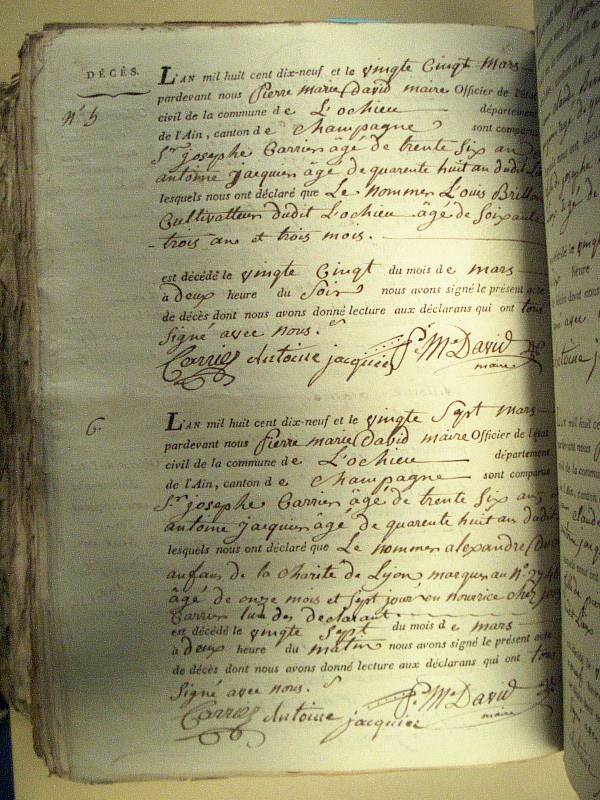 DÉCÈS.
N° 5
L'AN mil huit cent dix-neuf et le vingte Cinqt mars
pardevant nous pierre marie David maire Officier de l'état
civil de la commune de L'ochieu département
de l'Ain, canton de Champagne sont comparus
Sr. josephe Carrier âgé de trente Six an
antoine jacquier âgé de quarente huit an dudit
lesquels nous ont déclaré que Le nommer Louis
Cultivatteur dudit Lochieu âgé de Soixante
trois an et trois mois.
est décédé le vingte Cinqt du mois de mars
à deux heure du Soir nous avons signé le présent acte
de décès dont nous avons donné lecture aux déclarans qui ont tous
Signé avec nous.
Carrier Antoine jacquier P. Me David
maire
6.
L'AN mil huit cent dix-neuf et le vingte Sept mars
pardevant nous pierre marie David maire Officier de l'état
civil de la commune de L'ochieu département
de l'Ain, canton de Champagne sont comparus
Sr. josephe Carrier âgé de trente Six an
antoine jacquier âgé de quarente huit an dudit
lesquels nous ont déclaré que Le nommer alexandre
anfan de la charité de Lyon marque au N°
âgé de onze mois et Sept jour en nourrice chez
Carrier lun des declarant
est décédé le vingte Sept du mois de mars
à deux heure du matin nous avons signé le présent acte
de décès dont nous avons donné lecture aux déclarans qui ont tous
Signé avec nous.
Carrier Antoine jacquier P. Me David
maire